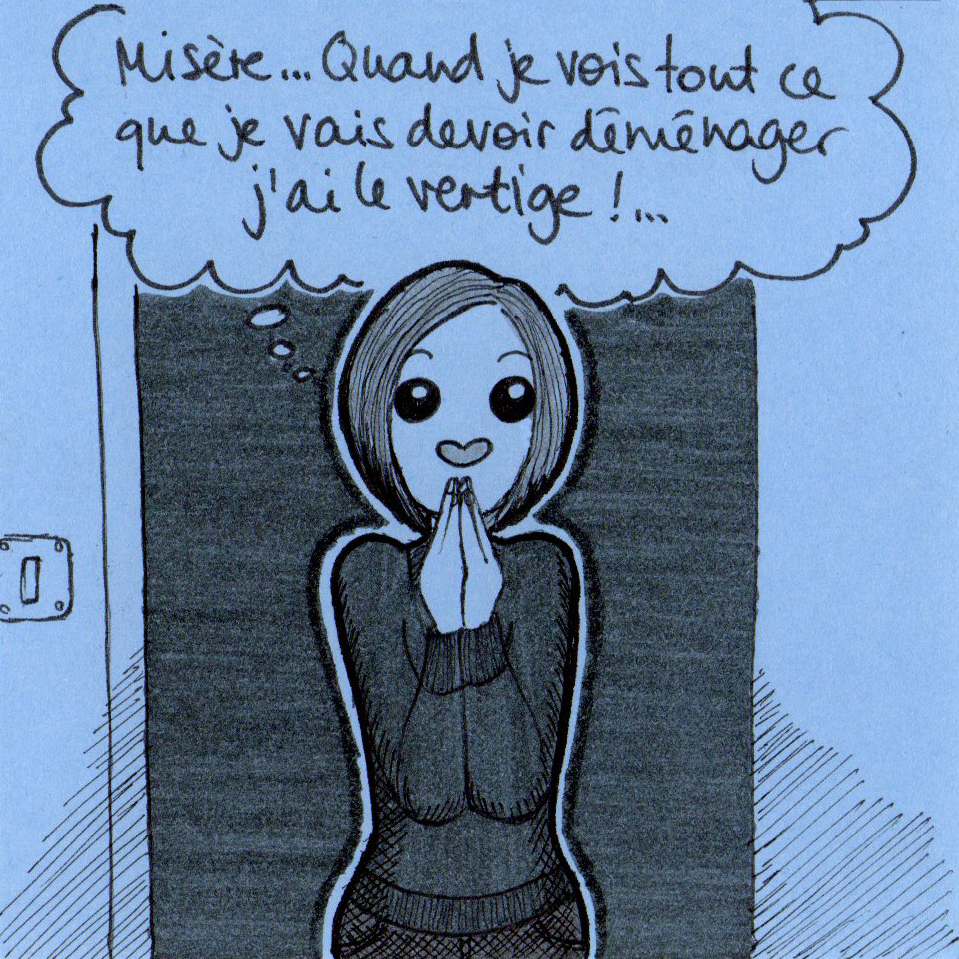 Misère... Quand je vois tout ce
que je vais devoir déménager
j'ai le vertige !...